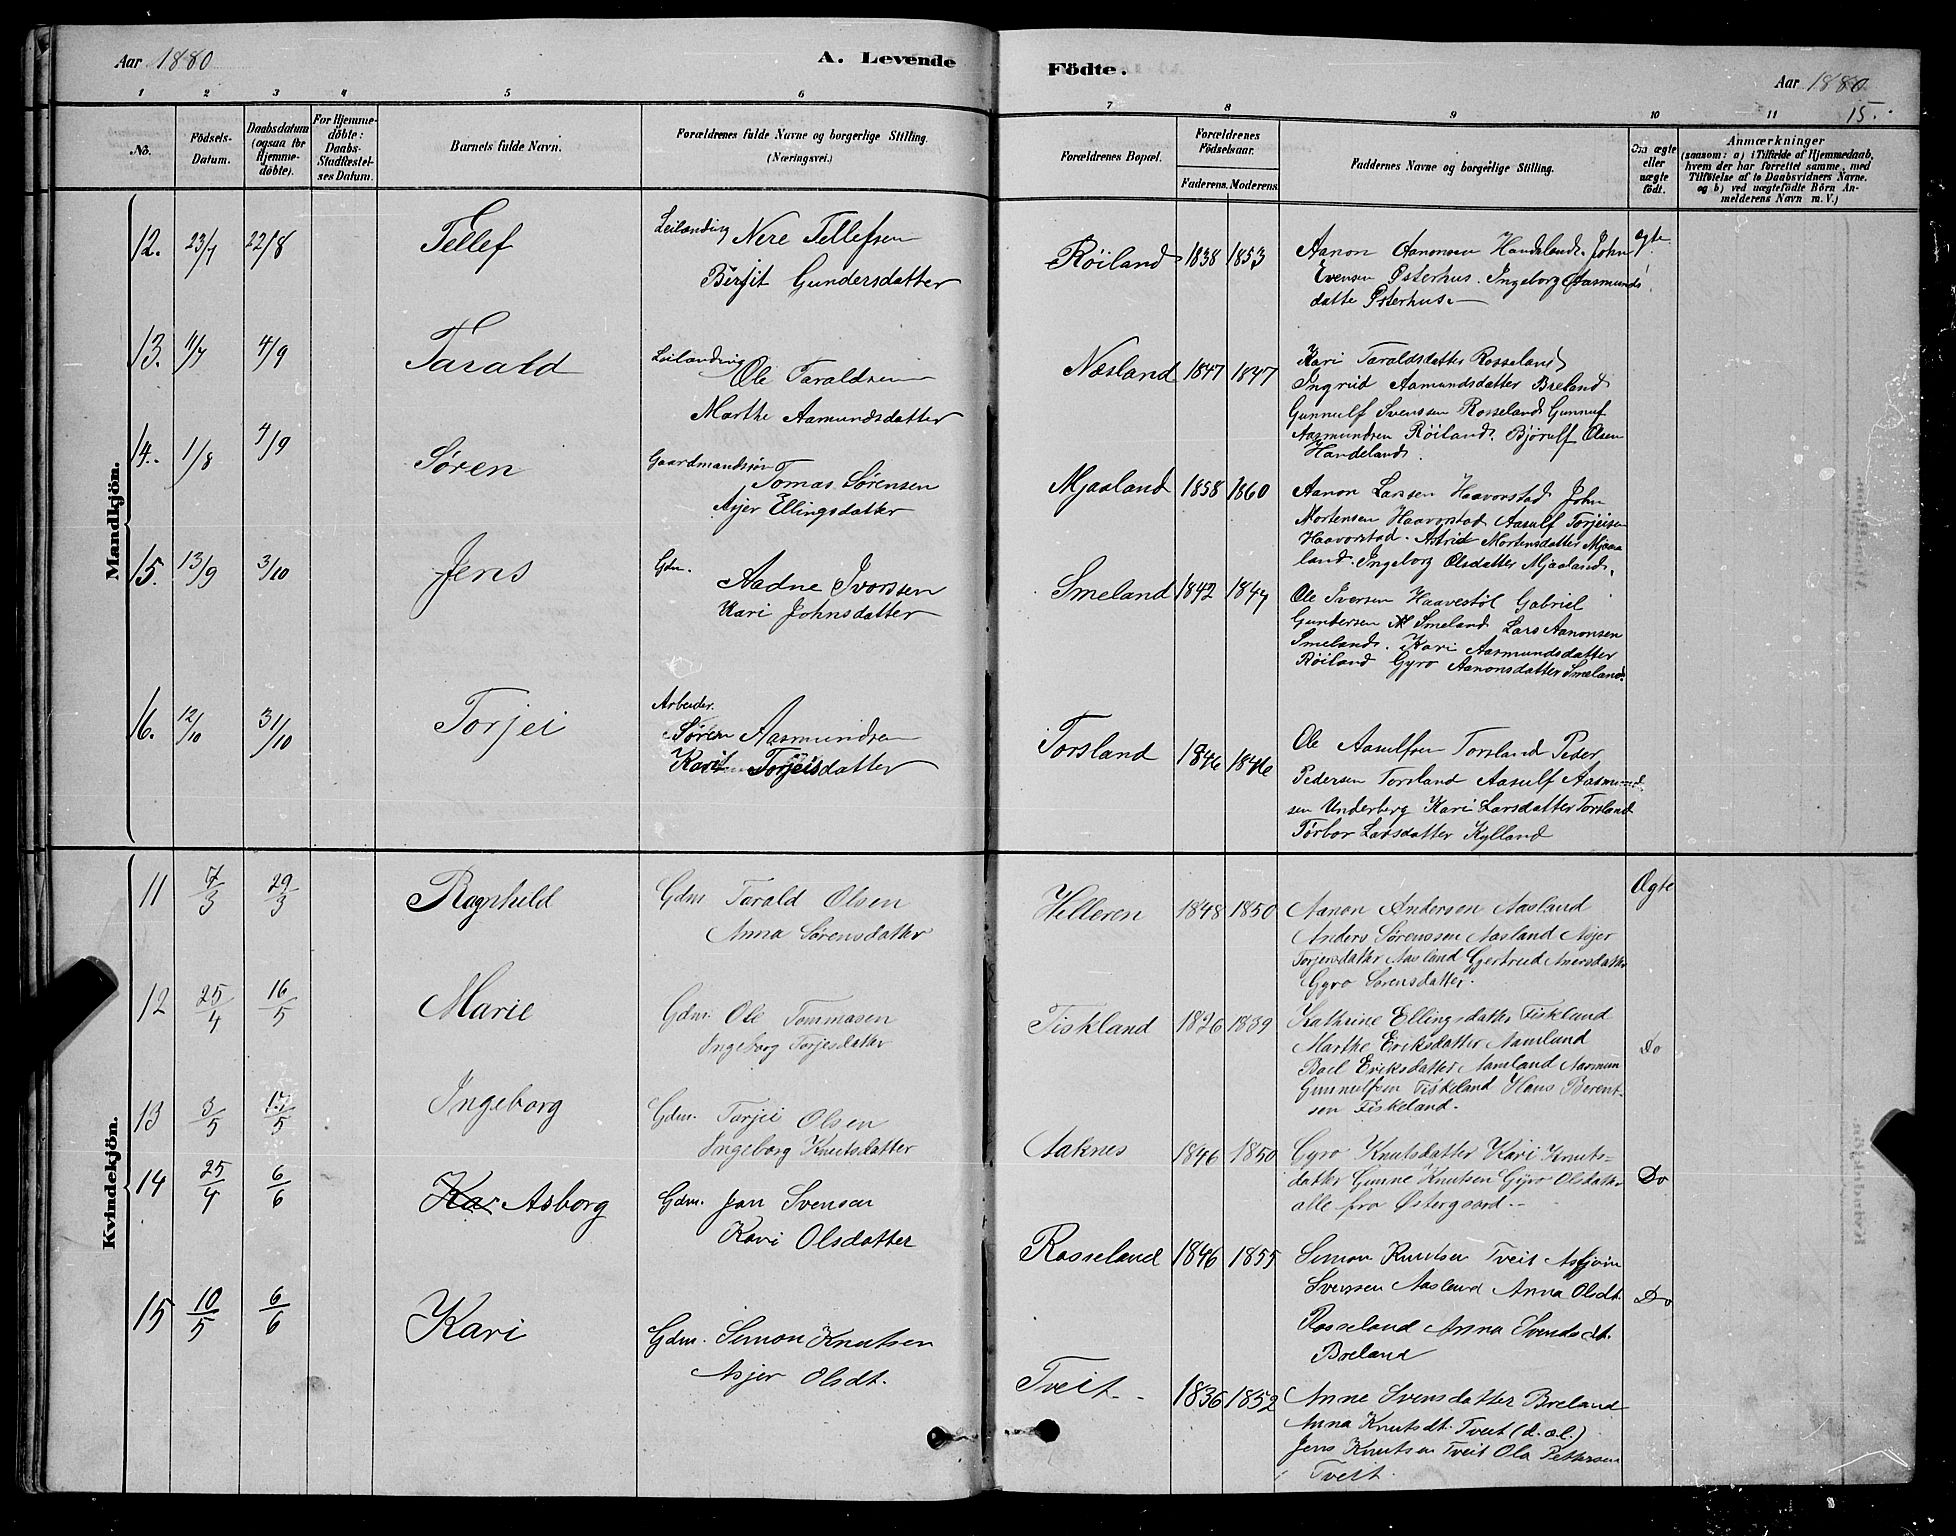 Aar 1880
A. Levende
Födte.
Aar 1880
15.
1 2 3 4 5 6 7 8 9 10 11
No.
Födsels-Datum.
Daabsdatum (ogsaa for Hjemme-döbte).
For Hjemme-döbte: Daabs-Stadfæstel-ses Datum.
Barnets fulde Navn.
Forældrenes fulde Navne og borgerlige Stilling. (Næringsvei.)
Forældrenes Bopæl.
Forældrenes Födselsaar.
Faderens. Moderens.
Faddernes Navne og borgerlige Stilling.
Om ægte eller uægte födt.
Anmærkninger
(saasom: a) i Tilfælde af Hjemmedaab, hvem der har forrettet samme, med Tilföielse af to Daabsvidners Navne. og b) ved uægtefödte Börn An-melderens Navn m. V.)
Mandkjön.
12. 23/7 22/8 Tellef
Leilænding Nere Tellefsen
Birjit Gundersdatter
Röiland 1838 1853
Aanon Aanonsen Handeland. John
Evensen Østerhus. Ingeborg Aasmunds
datte Østerhus.
ægte
13. 11/7 4/9 Tarald
Leilænding
Ole Taraldsen
Marthe Aamundsdatter
Næsland 1847 1847
Kari Taraldsdatter Rosseland
Ingrid Aamundsdatter Breland
Gunnulf Svenssen Rosseland Gunnuf
Aasmundsen Röiland. Björulf Olsen
Handeland.
14. 1/8 4/9 Sören
Gaardmandssön
Tomas Sörensen
Asjer Ellingsdatter
Mjaaland 1858 1860
Aanon Larsen Haavorstad John
Mortensen Haavorstad Aasulf Torjeisen
Haavorstad. Astrid Mortensdatter Mjaa
land. Ingeborg Olsdatter Mjaaland.
15. 13/9 3/10 Jens
Gdm.
Aadne Ivorssen
Kari Johnsdatter
Smeland 1842 1847
Ole Iversen Haavestöl Gabriel
Gundersen Smeland Lars Aanonsen
Smeland. Kari Aasmundsdatter
Röiland Gyro Aanonsdatter Smeland.
16. 12/10 31/10 Torjei
Arbeider.
Sören Aasmundsen
Kari Torjeisdatter
Torsland 1846 1846
Ole Aasulfsen Torsland Peder
Pedersen Torsland Aasulf Aasmund
sen Underberg Kari Larsdatter Torsland
Torbor Larsdatter Kylland
Kvindekjön.
11 7/3 29/3 Ragnhild
Gdm Tarald Olsen
Anna Sørensdatter
Helleren 1848 1850
Aanon Andersen Aasland
Anders Sørenssen Aasland Asjer
Torjersdatter Aasland Gjertrud Anersdatter
Gyro Sorensdatter.
Ægte
12 25/4 16/5 Marie
Gdm. Ole Tommasen
Ingeborg Torjesdatter
Fiskland 1826 1839
Kathrine Ellingsdatter Fiskland
Marthe Eriksdatter Aamland
Boel Eriksdatter Aamland Aasmun
Gunnulfsen Fiskeland Hans Berent-
sen Fiskeland.
Do
13 3/5 17/5 Ingeborg
Gdm. Torjei Olsen
Ingeborg Knutsdatter
Aaknes 1846 1850
Gyro Knutsdatter Kari Knuts-
datter Gunne Knutsen Gyro Olsdatter
alle fra Østergaard.
Do
14 25/4 6/6 Kar Asborg
Gdm. Jon Svensen
Kari Olsdatter
Rosseland 1846 1855
Simon Knutsen Tveit Asbjörn
Svenssen Aasland Anna Olsdt.
Rosseland Anna Svendsdt.
Breland
Do
15 10/5 6/6 Kari
Gdm. Simon Knutsen
Asjer Olsdt.
Tveit 1836 1852
Anne Svensdatter Breland
Anna Knutsdt. Tveit (d. æl.)
Jens Knutsen Tveit Ola Pettersen
Tveit.